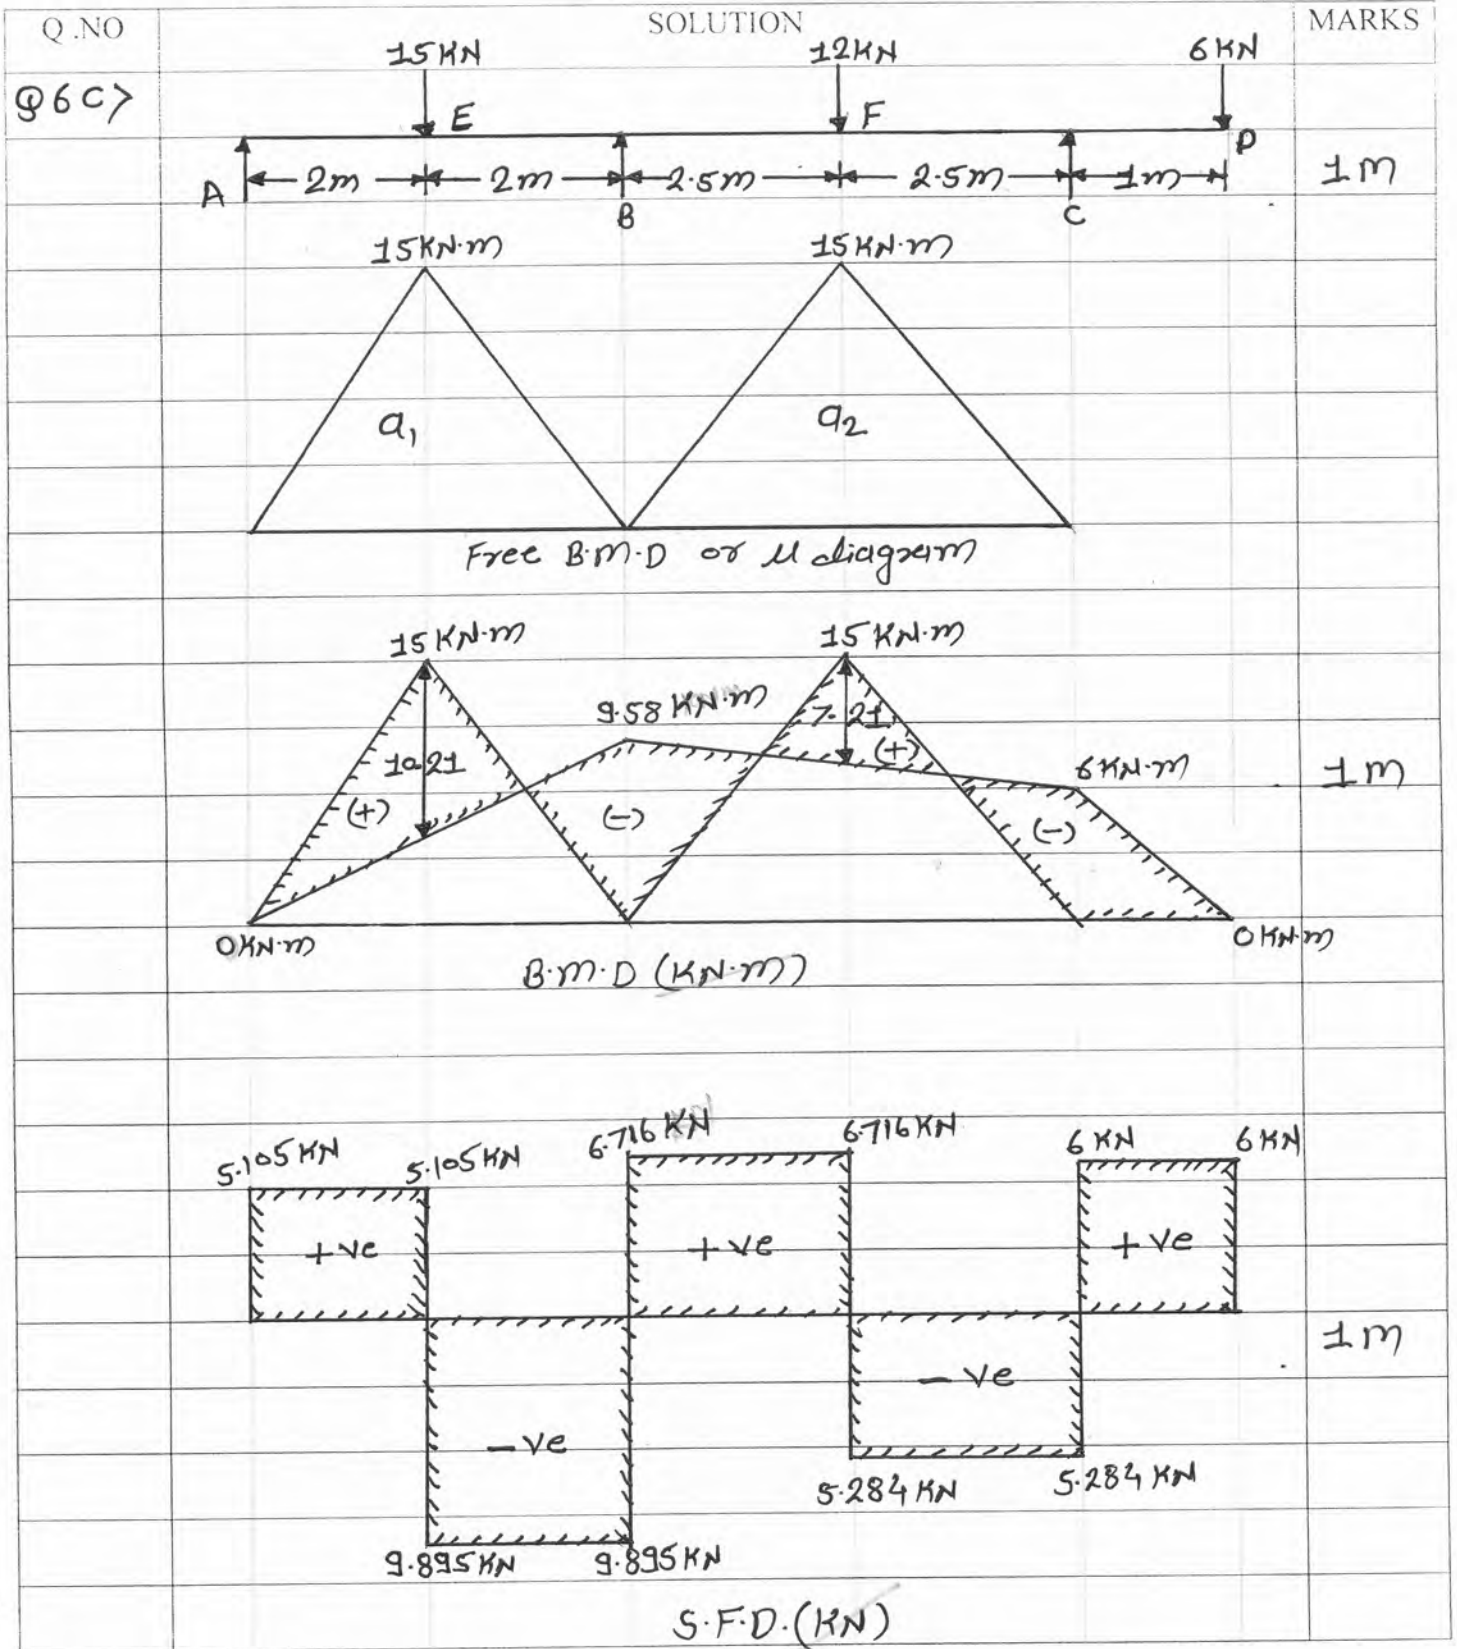 Q.NO SOLUTION MARKS
15KN 12KN 6KN
Q6C>
E F D
A 2m 2m B 2.5m 2.5m C 1m 1m
15KN·m 15KN·m
a1 a2
Free B.M.D or μ diagram
15KN·m 15KN·m
9.58 KN·m 7.21
10.21 (+) 6KN·m 1m
(+) (-) (-)
0KN·m 0KN·m
B.M.D (KN·m)
5.105KN 5.105KN 6.716KN 6.716KN 6KN 6KN
+ve +ve +ve
1m
-ve
-ve
5.284KN 5.284KN
9.895KN 9.895KN
S.F.D.(KN)